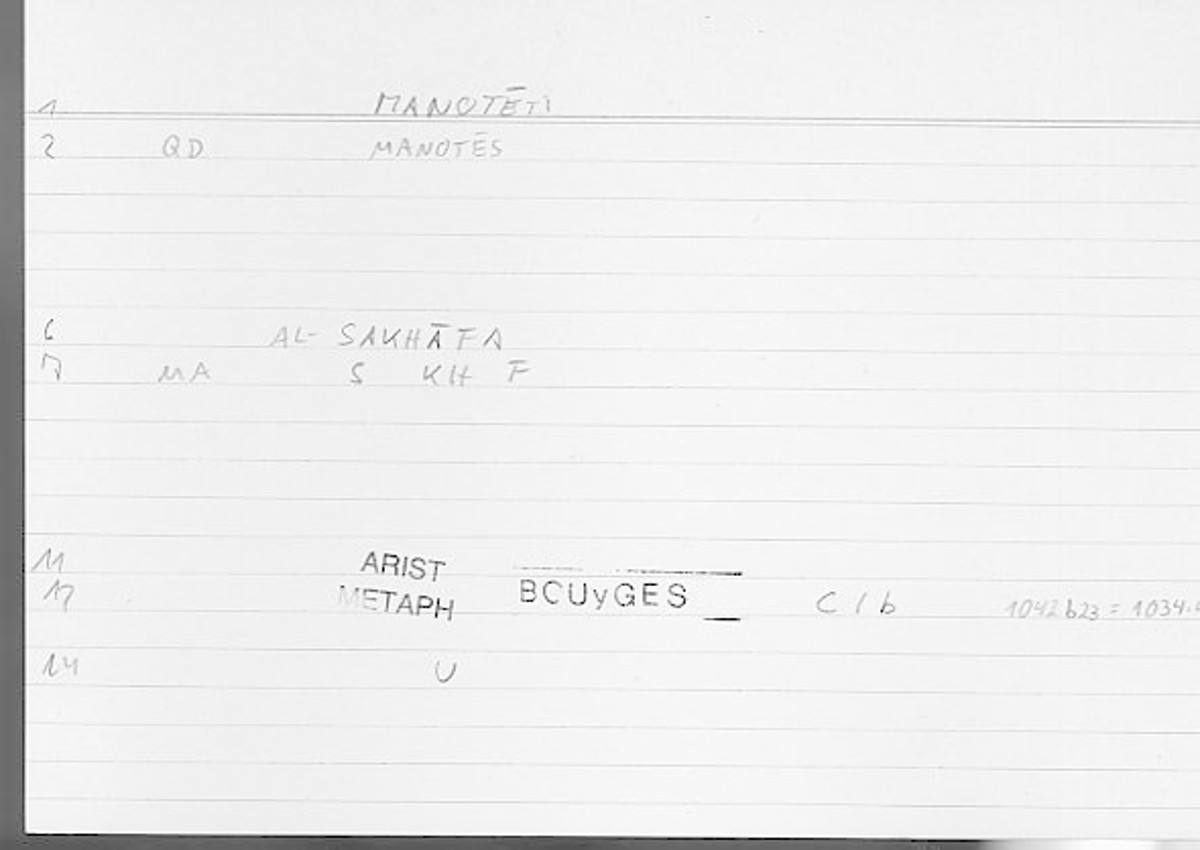 1 MANOTĒTI
2 QD MANOTĒS
6 AL- SAKHĀFA
7 MA S KH F
11 ARIST
12 METAPH BCUyGES C / b 1042b23 = 1034.
14 U